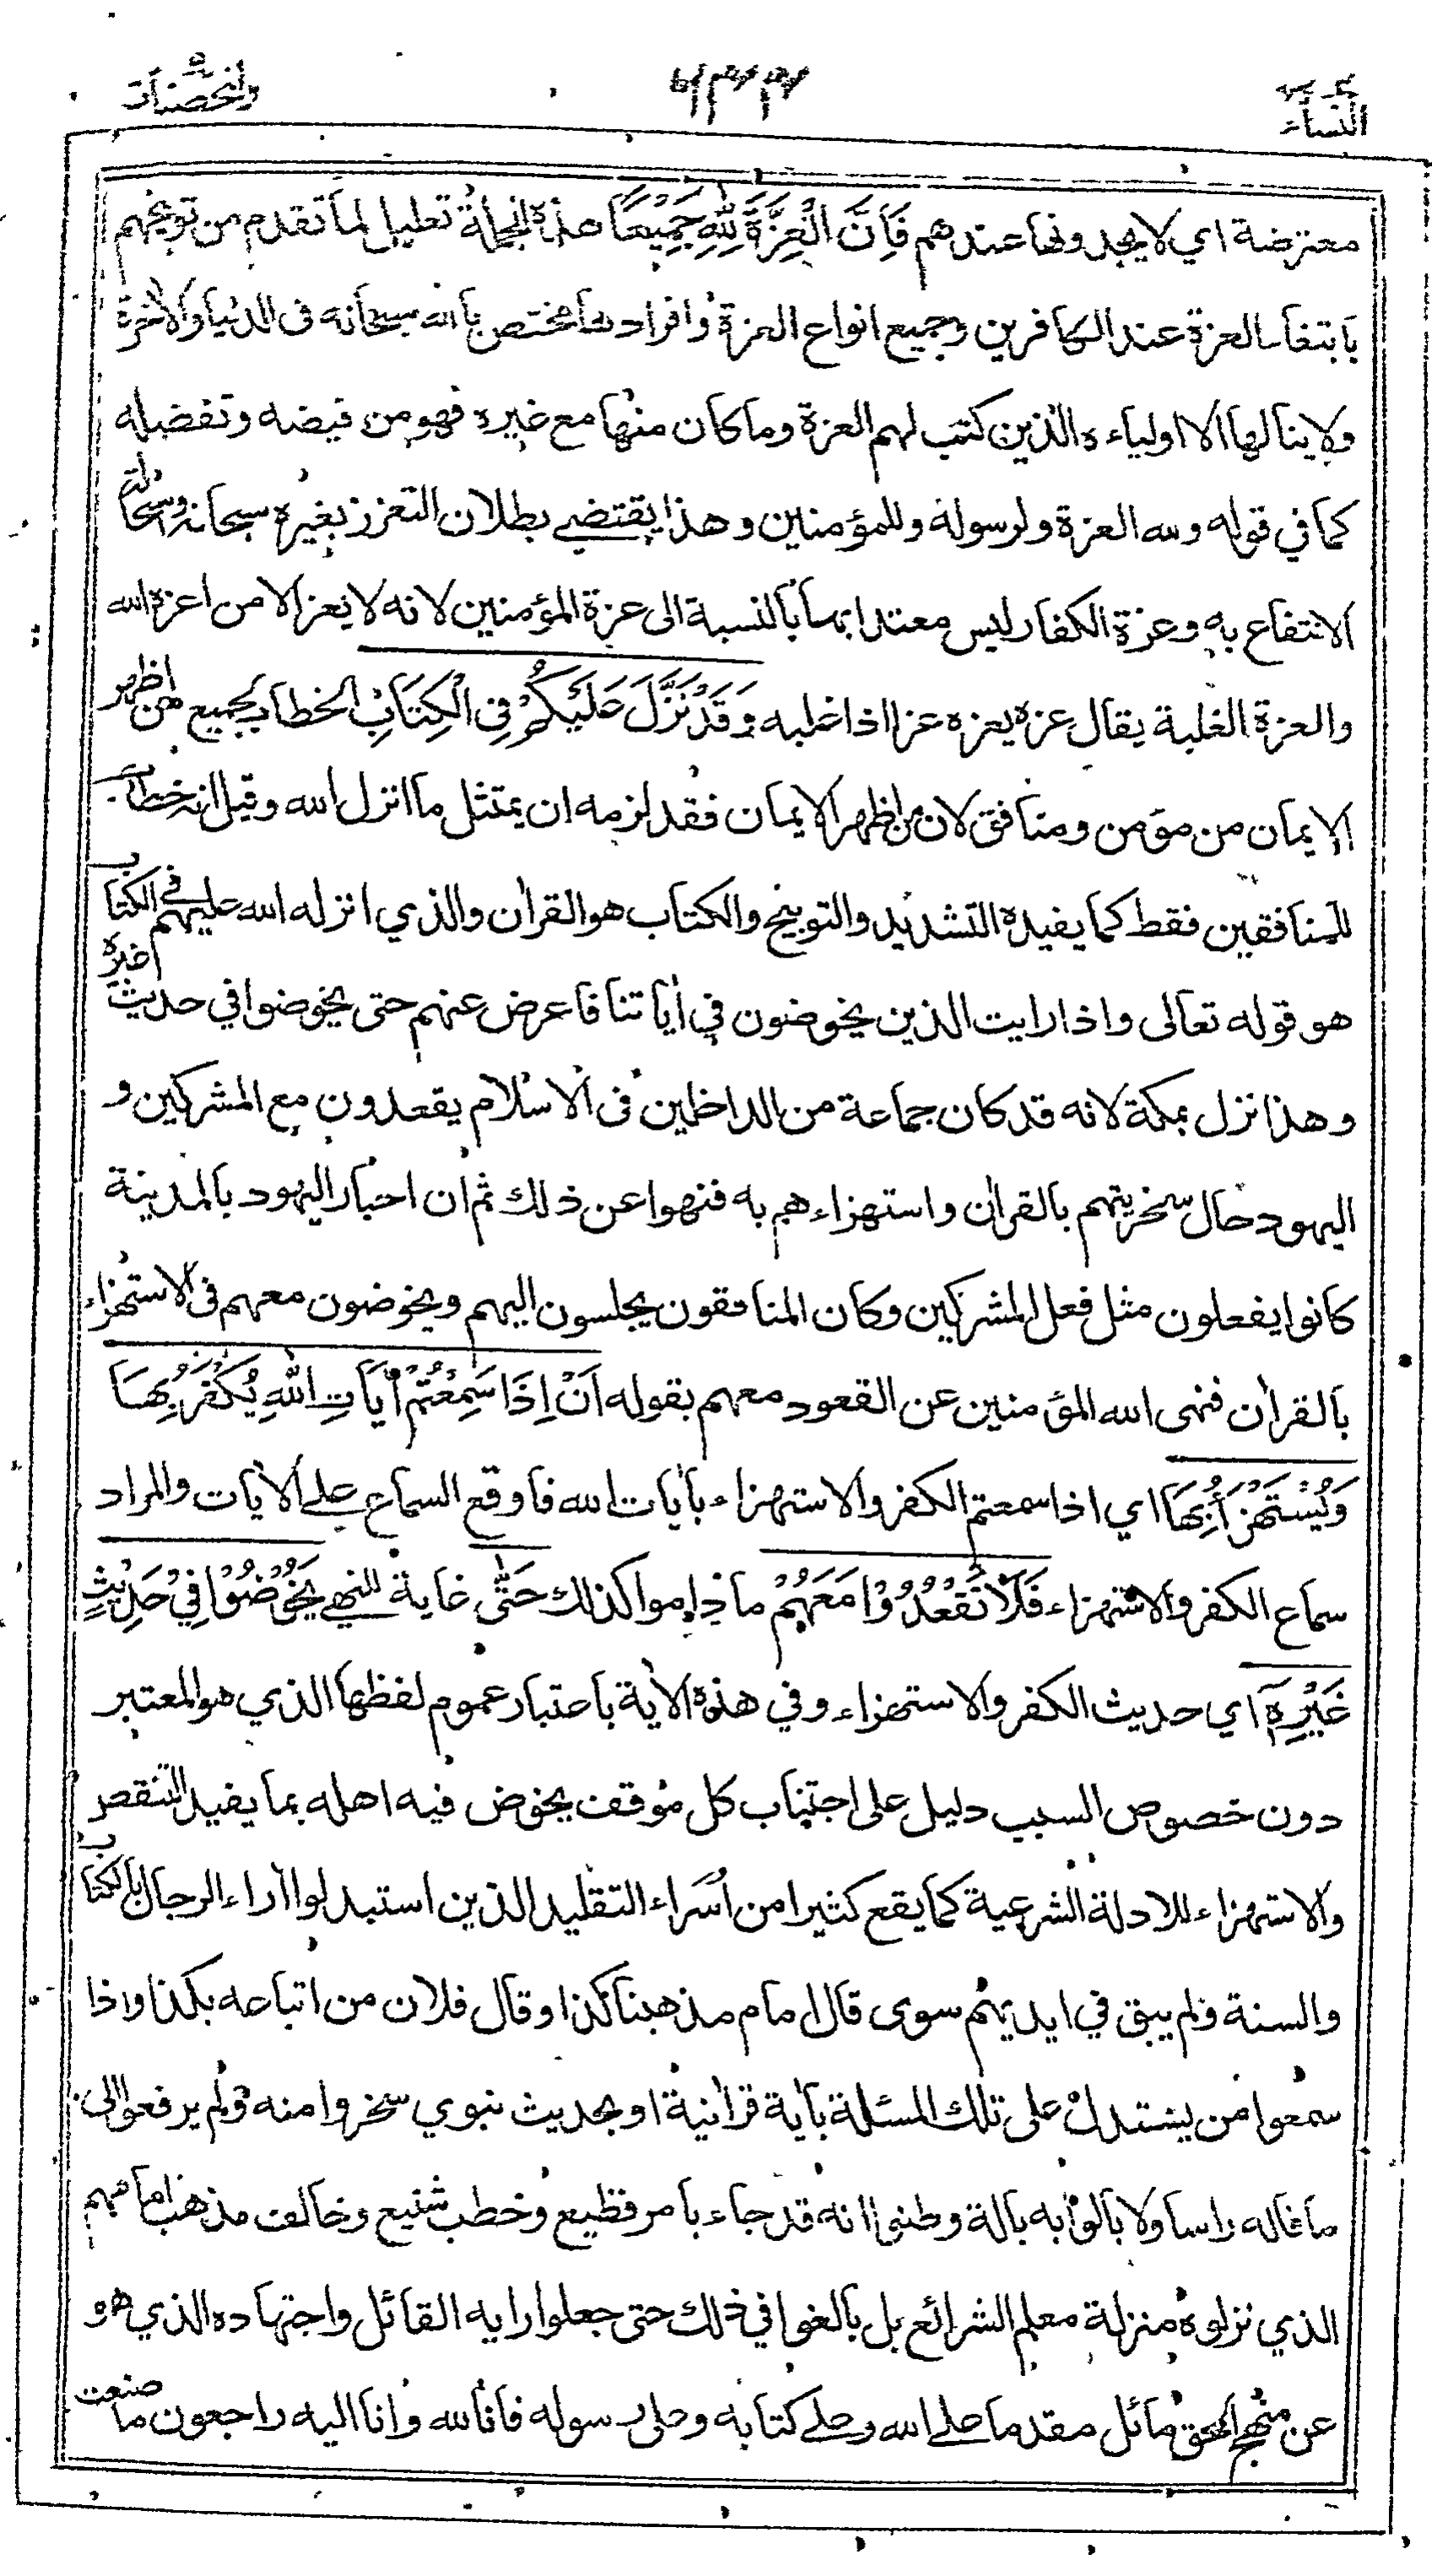 النساء ٦٣٣ والمحصنات
معترضة اي لا يجدونها عندهم فَاِنَّ الْعِزَّةَ لِلّٰهِ جَمِيْعًا هذه الجملة تعليل لما تقدم من توبيخهم
بابتغاء العزة عند الكافرين وجميع انواع العزة وافرادها مختص بالله سبحانه فى الدنيا والاخرة
ولا ينالها الا اولياءه الذين كتب لهم العزة وما كان منها مع غيره فهو من فيضه وتفضله
كما في قوله ولله العزة ولرسوله وللمؤمنين وهذا يقتضے بطلان التعزز بغيره سبحانه واستحالة
الانتفاع به وعزة الكفار ليس معتدا بها بالنسبة الى عزة المؤمنين لانه لا يعز الا من اعزه الله
والعزة الغلبة يقال عزه يعزه عزا اذا غلبه وَقَدْ نَزَّلَ عَلَيْكُمْ فِى الْكِتَابِ الخطاب لجميع من اظهر
الايمان من مؤمن ومنافق لان من اظهر الايمان فقد لزمه ان يمتثل ما انزل الله وقيل انه خطاب
للمنافقين فقط كما يفيده التشديد والتوبيخ والكتاب هو القران والذي انزله الله عليهم في الكتاب
هو قوله تعالى واذا رايت الذين يخوضون في أياتنا فاعرض عنهم حتى يخوضوا في حديث غيره
وهذا نزل بمكة لانه قد كان جماعة من الداخلين فى الاسلام يقعدون مع المشركين و
اليهود حال سخريتهم بالقران واستهزاءهم به فنهوا عن ذلك ثم ان احبار اليهود بالمدينة
كانوا يفعلون مثل فعل المشركين وكان المنافقون يجلسون اليهم ويخوضون معهم فى الاستهزاء
بالقران فنهى الله المؤمنين عن القعود معهم بقوله اَنْ اِذَا سَمِعْتُمْ اٰيَاتِ اللّٰهِ يُكْفَرُ بِهَا
وَيُسْتَهْزَأُ بِهَا اي اذا سمعتم الكفر والاستهزاء بايات الله فاوقع السماع علے الايات والمراد
سماع الكفر والاستهزاء فَلَا تَقْعُدُوْا مَعَهُمْ ما داموا كذلك حَتّٰى غاية للنهے يَخُوْضُوْا فِيْ حَدِيْثٍ
غَيْرِهٖ اي حديث الكفر والاستهزاء وفي هذه الاية باعتبار عموم لفظها الذي هو المعتبر
دون خصوص السبب دليل على اجتناب كل موقف يخوض فيه اهله بما يفيد التنقص
والاستهزاء للادلة الشرعية كما يقع كثيرا من أسراء التقليد الذين استبدلوا أراء الرجال بالكتاب
والسنة ولم يبق في ايديهم سوى قال امام مذهبنا كذا وقال فلان من اتباعه بكذا واذا
سمعوا من يستدل على تلك المسئلة باية قرانية او بحديث نبوي سخروا منه ولم يرفعوا الى
ما قاله راسا ولا بالوا به بالة وظنوا انه قد جاء بامر فظيع وخطب شنيع وخالف مذهب امامهم
الذي نزلوه منزلة معلم الشرائع بل بالغوا في ذلك حتى جعلوا رايه القائل واجتهاده الذي هو
عن منهج الحق مائل مقدما علے الله وعلے كتابه وعلى رسوله فانا لله وانا اليه راجعون ما صنعت